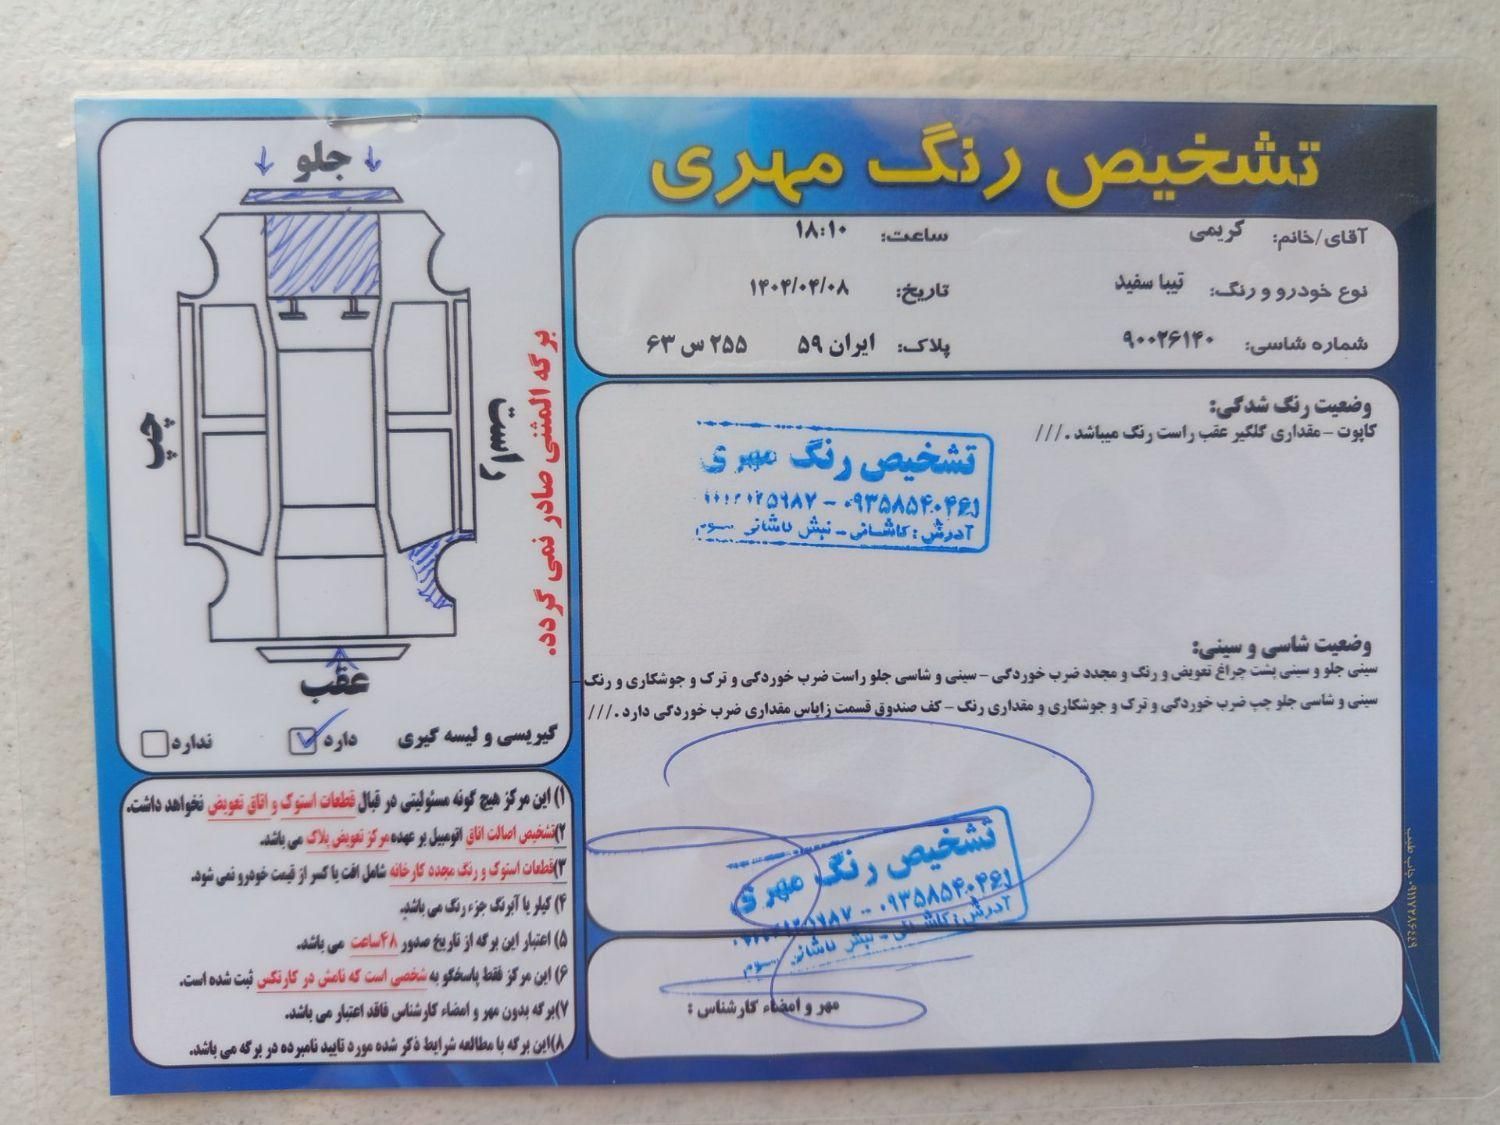 تشخیص رنگ مهری
آقای/خانم: کریمی
ساعت: ۱۸:۱۰
نوع خودرو و رنگ: تیبا سفید
تاریخ: ۱۴۰۴/۰۴/۰۸
شماره شاسی: ۹۰۰۲۶۱۴۰
پلاک: ایران ۵۹ ۲۵۵ س ۶۳
وضعیت رنگ شدگی:
کاپوت - مقداری گلگیر عقب راست رنگ میباشد .///
تشخیص رنگ مهری
۰۹۳۵۸۵۴۰۴۶۱ -
آدرش : کاشانی - نبش کاشانی سوم
وضعیت شاسی و سینی:
سینی جلو و سینی پشت چراغ تعویض و رنگ و مجدد ضرب خوردگی - سینی و شاسی جلو راست ضرب خوردگی و ترک و جوشکاری و رنگ -
سینی و شاسی جلو چپ ضرب خوردگی و ترک و جوشکاری و مقداری رنگ - کف صندوق قسمت زاپاس مقداری ضرب خوردگی دارد .///
تشخیص رنگ مهری
۰۹۳۵۸۵۴۰۴۶۱ -
آدرش : کاشانی - نبش کاشانی سوم
مهر و امضاء کارشناس :
جلو
چپ
راست
عقب
برگه المثنی صادر نمی گردد.
گیریسی و لیسه گیری دارد ندارد
۱) این مرکز هیچ گونه مسئولیتی در قبال قطعات استوک و اتاق تعویض نخواهد داشت.
۲)تشخیص اصالت اتاق اتومبیل بر عهده مرکز تعویض پلاک می باشد.
۳)قطعات استوک و رنگ مجدد کارخانه شامل افت یا کسر از قیمت خودرو نمی شود.
۴) کیلر یا آبرنگ جزء رنگ می باشد.
۵) اعتبار این برگه از تاریخ صدور ۴۸ساعت می باشد.
۶) این مرکز فقط پاسخگو به شخصی است که نامش در کارتکس ثبت شده است.
۷)برگه بدون مهر و امضاء کارشناس فاقد اعتبار می باشد.
۸)این برگه با مطالعه شرایط ذکر شده مورد تایید نامبرده در برگه می باشد.